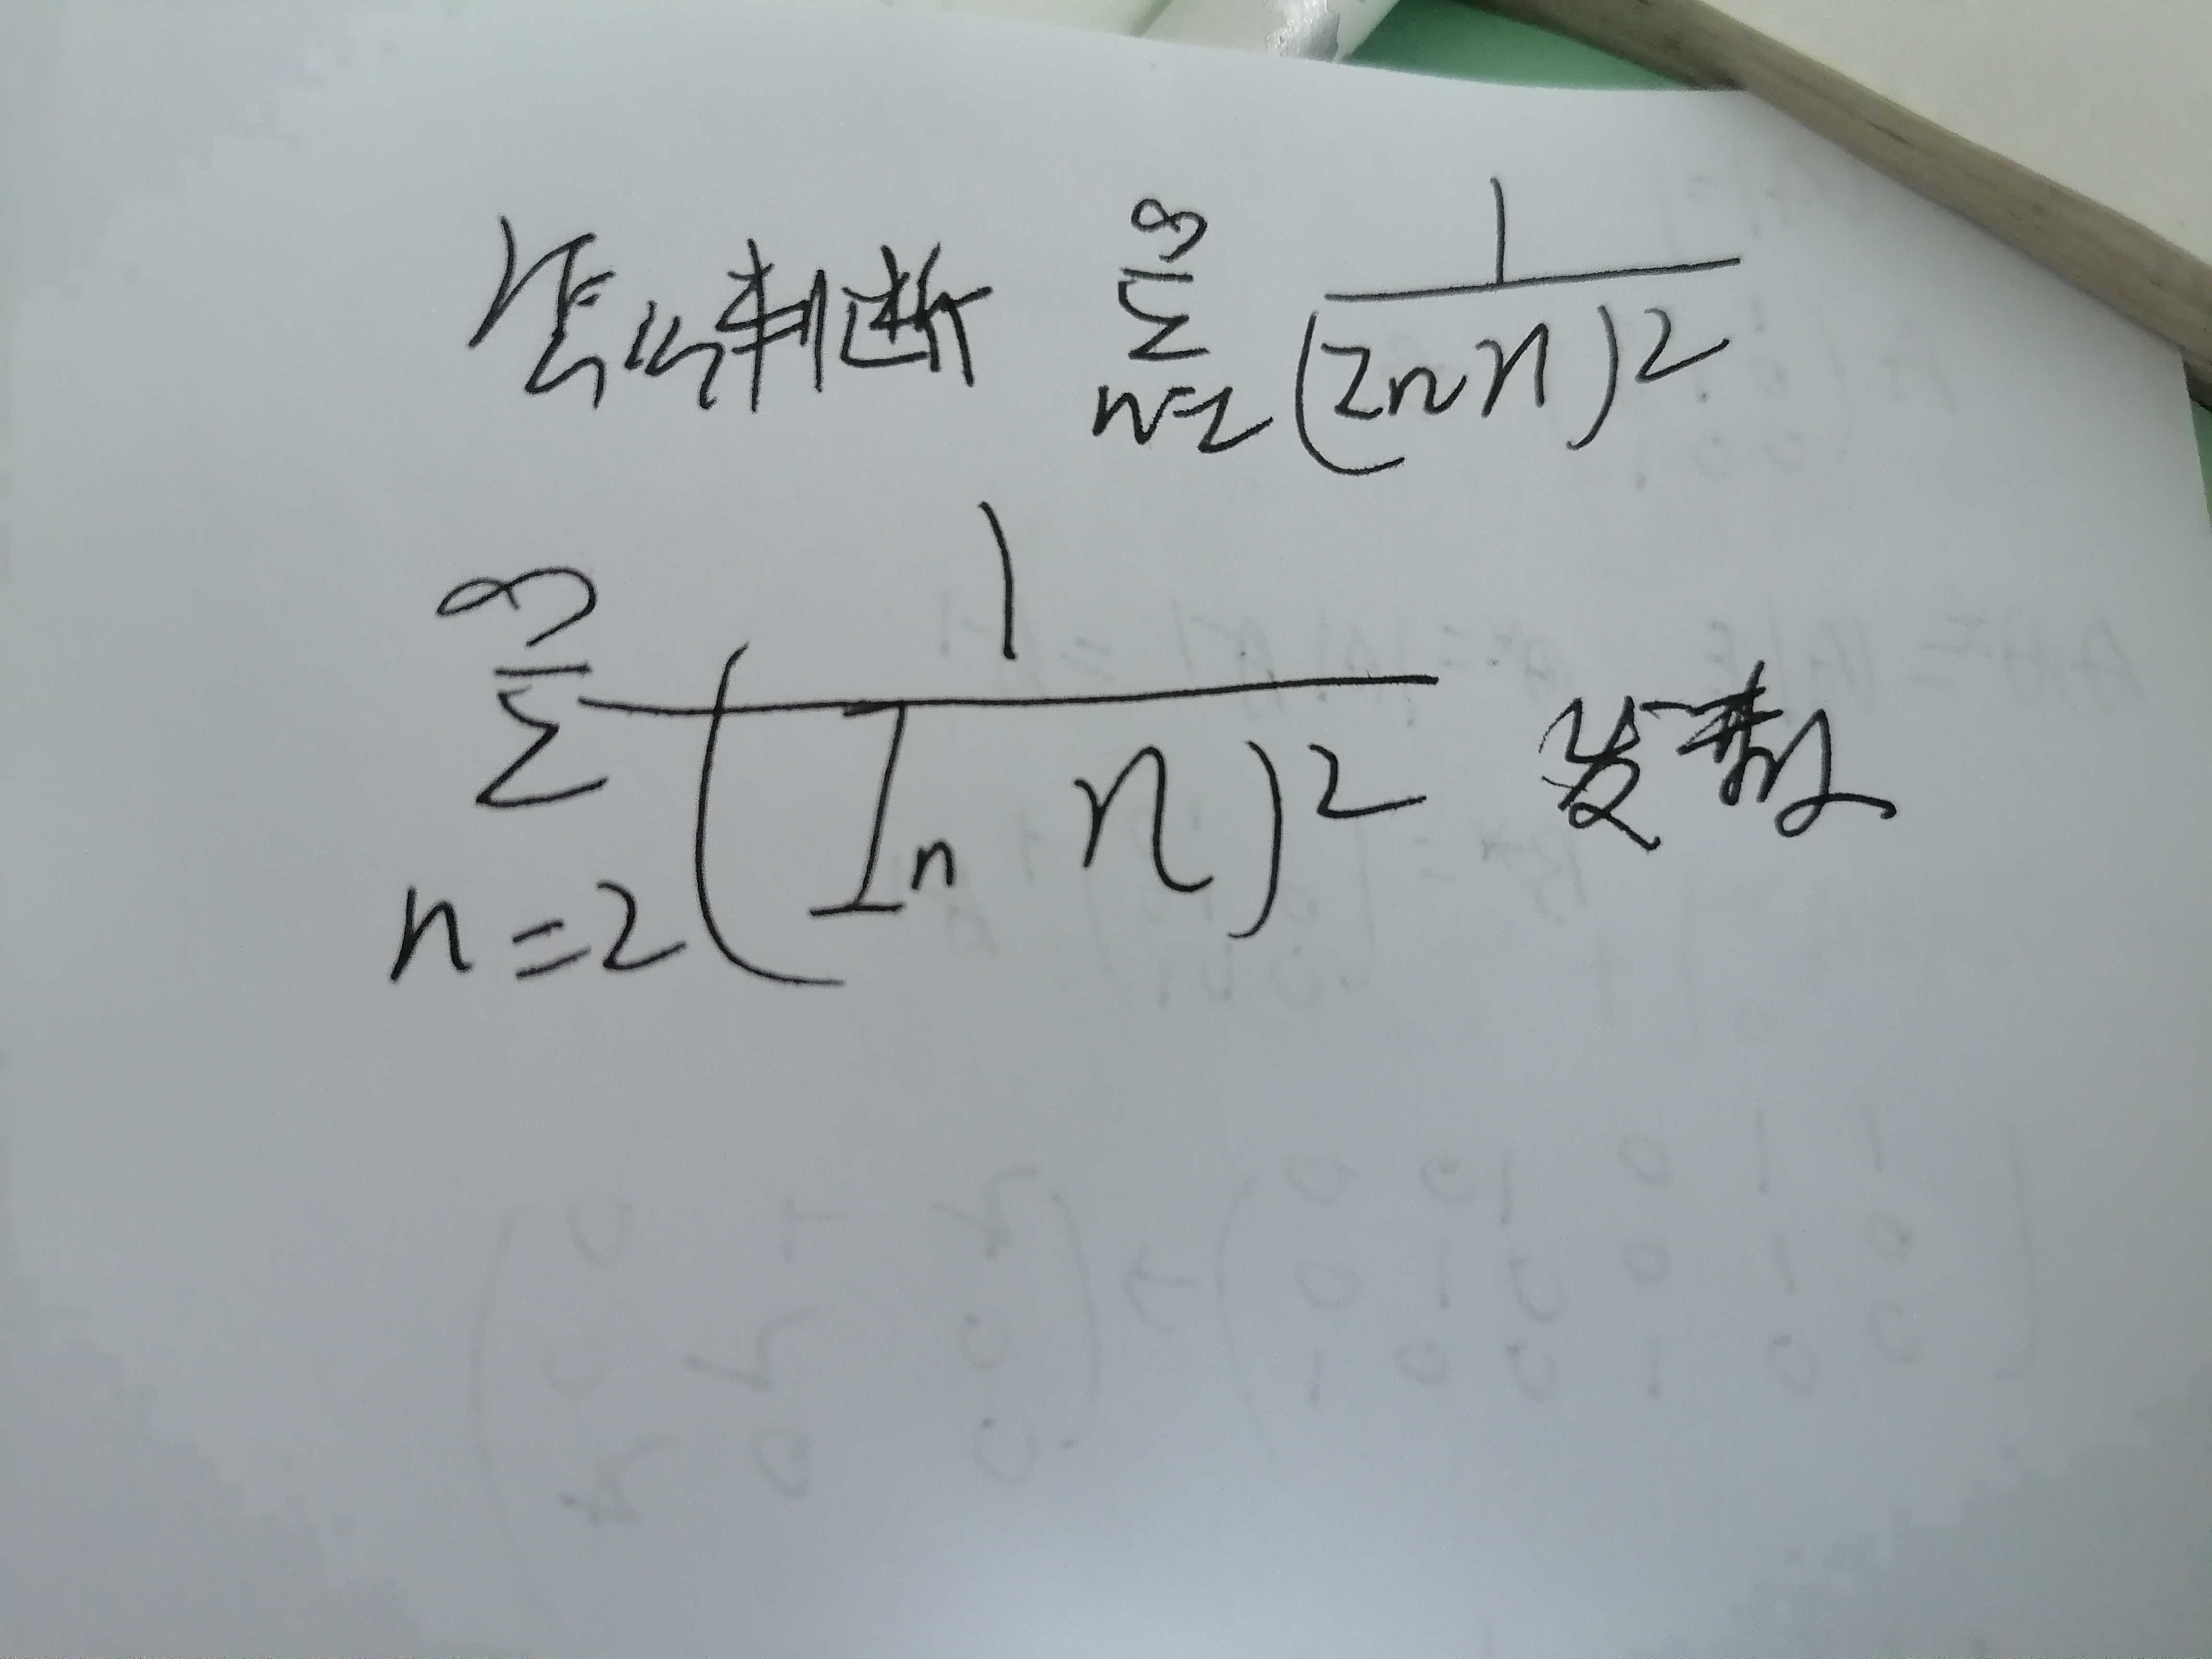 怎么判断 ∑_{n=2}^{∞} 1/(In n)^2
∑_{n=2}^{∞} 1/(In n)^2 发散